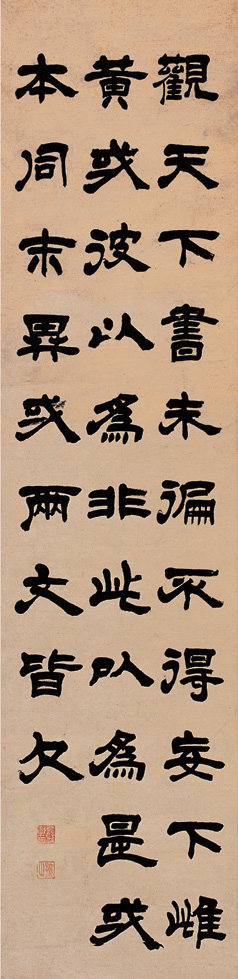 觀天下書未徧不得妄下雌
黃或彼以為非此以為是或
本同末異或兩文皆欠